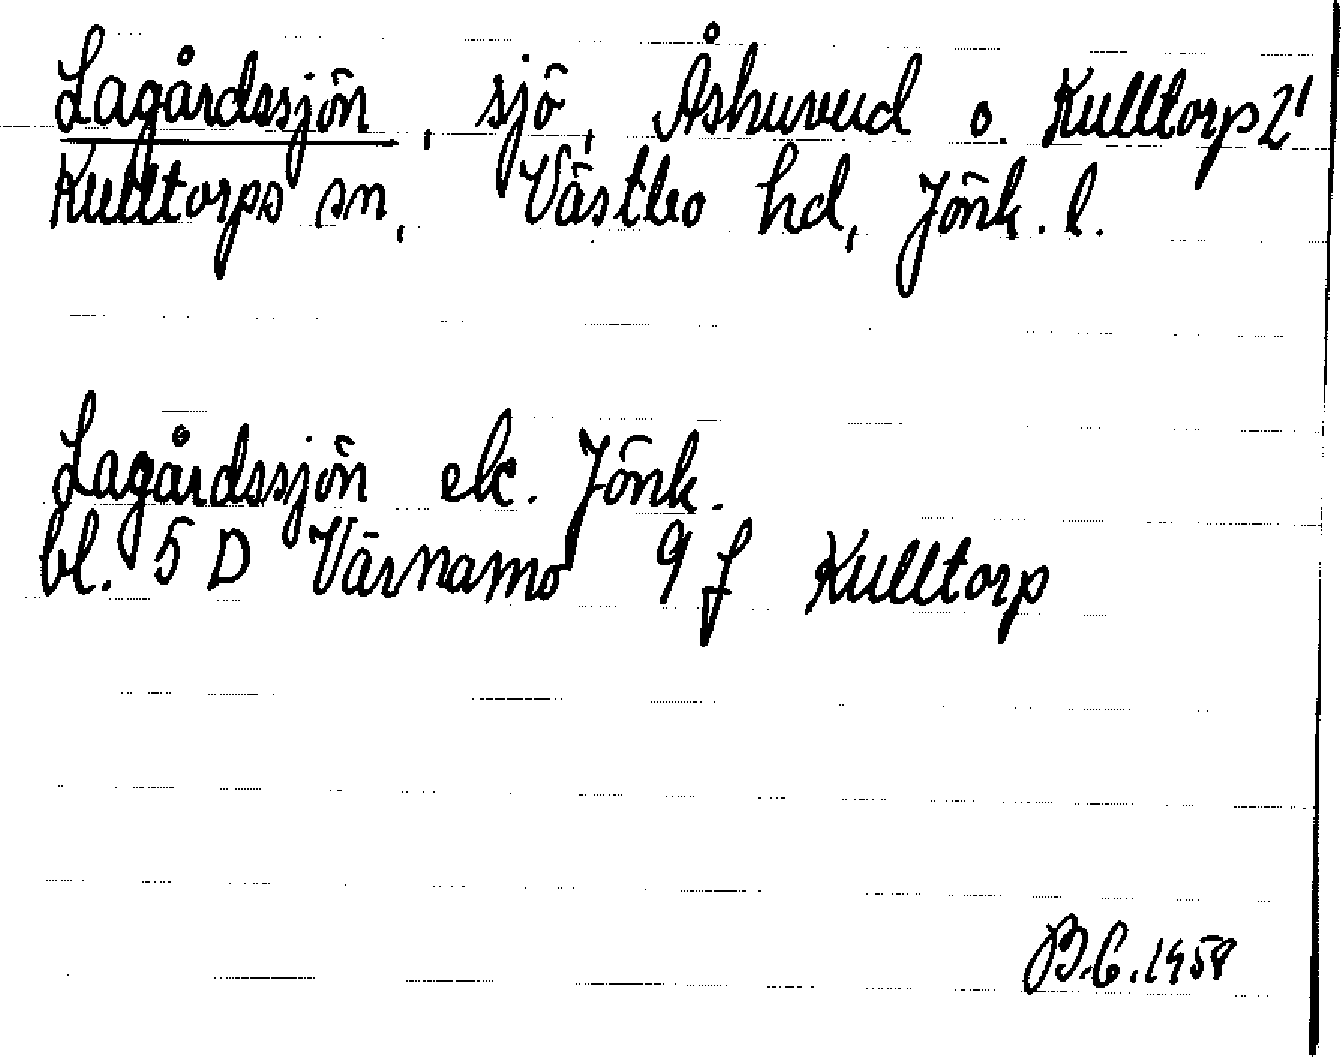 Lagårdssjön, sjö, Åshuvud o. Kulltorp 2¹
Kulltorps sn, Västbo hd, Jönk. l.
Lagårdssjön ek. Jönk.
bl. 5 D Värnamo 9 f Kulltorp
B.C. 1958